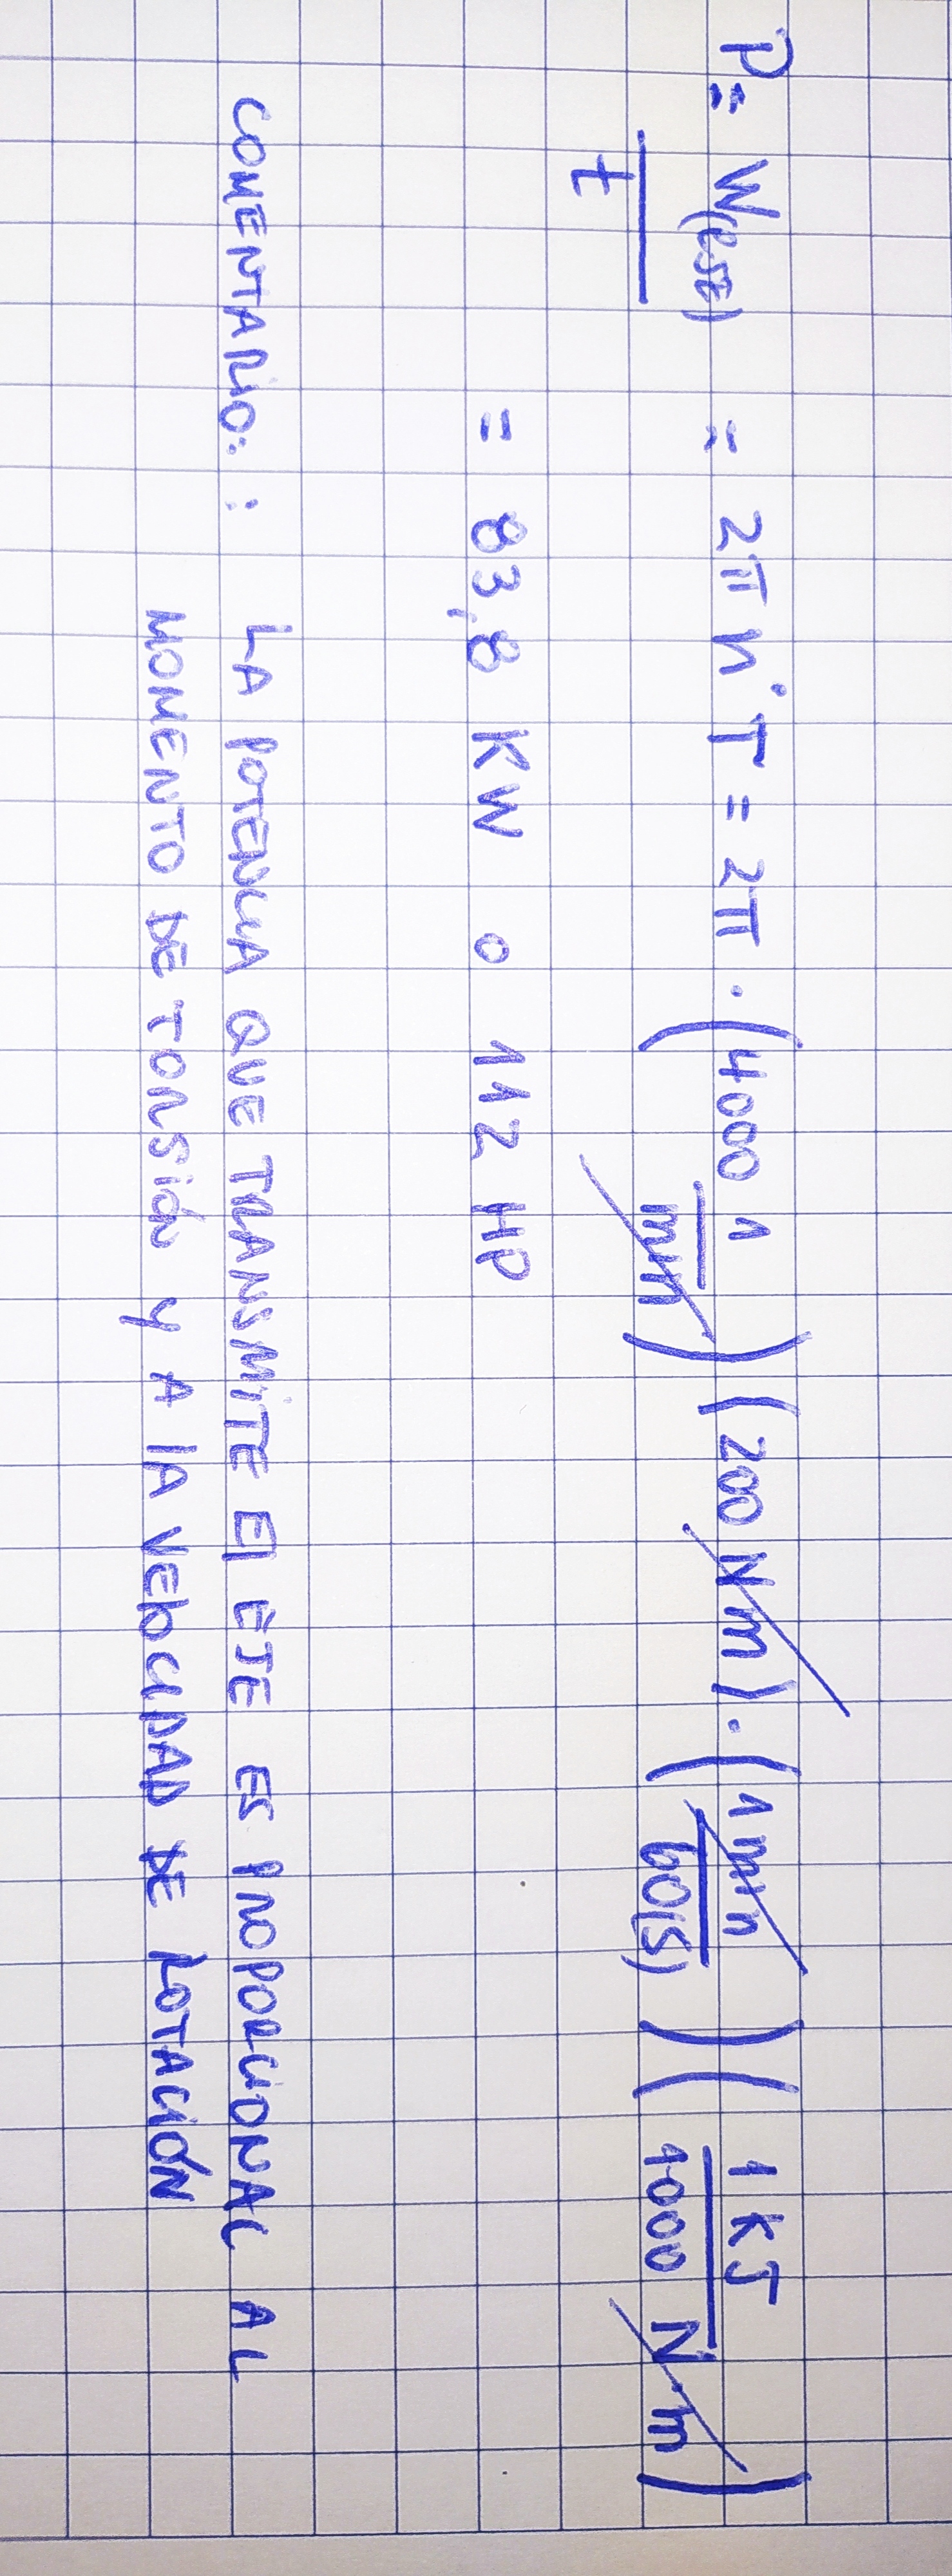 P = W(EJE) / t = 2π ṅ T = 2π · (4000 1/min) (200 Nm) · (1 min / 60(s)) (1 KJ / 1000 N·m)
= 83,8 KW o 112 HP
COMENTARIO: : LA POTENCIA QUE TRANSMITE El EJE ES PROPORCIONAL AL
MOMENTO DE TORSIÓN Y A lA VELOCIDAD DE ROTACIÓN